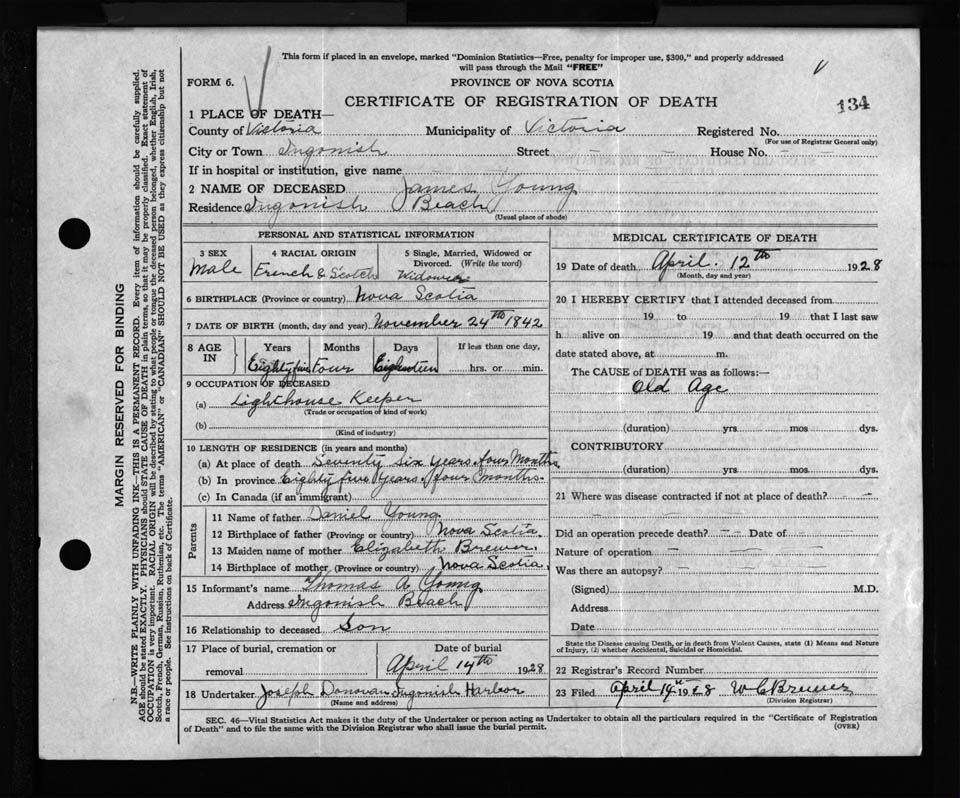 This form if placed in an envelope, marked "Dominion Statistics—Free, penalty for improper use, $300," and properly addressed
will pass through the Mail "FREE"
FORM 6.
PROVINCE OF NOVA SCOTIA
CERTIFICATE OF REGISTRATION OF DEATH
134
1 PLACE OF DEATH—
County of Victoria Municipality of Victoria Registered No.
(For use of Registrar General only)
City or Town Ingonish Street — — House No. — —
If in hospital or institution, give name
2 NAME OF DECEASED James Young
Residence Ingonish Beach
(Usual place of abode)
PERSONAL AND STATISTICAL INFORMATION
3 SEX
Male
4 RACIAL ORIGIN
French & Scotch
5 Single, Married, Widowed or
Divorced. (Write the word)
Widower
6 BIRTHPLACE (Province or country) Nova Scotia
7 DATE OF BIRTH (month, day and year) November 24th 1842
8 AGE IN
Years
Eighty five
Months
Four
Days
Eighteen
If less than one day,
hrs. or min.
9 OCCUPATION OF DECEASED
(a) Lighthouse Keeper
(Trade or occupation or kind of work)
(b)
(Kind of industry)
10 LENGTH OF RESIDENCE (in years and months)
(a) At place of death Seventy six years four Months
(b) In province Eighty five years four months
(c) In Canada (if an immigrant)
Parents
11 Name of father Daniel Young
12 Birthplace of father (Province or country) Nova Scotia
13 Maiden name of mother Elizabeth Brewer
14 Birthplace of mother (Province or country) Nova Scotia
15 Informant's name Thomas A Young
Address Ingonish Beach
16 Relationship to deceased Son
17 Place of burial, cremation or
removal
Date of burial
April 14th 1928
18 Undertaker Joseph Donovan Ingonish Harbor
(Name and address)
MEDICAL CERTIFICATE OF DEATH
19 Date of death April. 12th 1928
(Month, day and year)
20 I HEREBY CERTIFY that I attended deceased from
19 to 19 that I last saw
h alive on 19 and that death occurred on the
date stated above, at m.
The CAUSE of DEATH was as follows:—
Old Age
(duration) yrs. mos. dys.
CONTRIBUTORY
(duration) yrs. mos. dys.
21 Where was disease contracted if not at place of death? —
Did an operation precede death? — — Date of —
Nature of operation — — —
Was there an autopsy? — — —
(Signed) M.D.
Address
Date
State the Disease causing Death, or in death from Violent Causes, state (1) Means and Nature
of Injury, (2) whether Accidental, Suicidal or Homicidal.
22 Registrar's Record Number
23 Filed April 14th 1928 W C Brewer
(Division Registrar)
SEC. 46—Vital Statistics Act makes it the duty of the Undertaker or person acting as Undertaker to obtain all the particulars required in the "Certificate of Registration
of Death" and to file the same with the Division Registrar who shall issue the burial permit.
(OVER)
MARGIN RESERVED FOR BINDING
N.B.—WRITE PLAINLY WITH UNFADING INK—THIS IS A PERMANENT RECORD. Every item of information should be carefully supplied.
AGE should be stated EXACTLY. PHYSICIANS should STATE CAUSE OF DEATH in plain terms, so that it may be properly classified. Exact statement of
OCCUPATION is very important. RACIAL ORIGIN will be described by stating to what people or tongue the deceased person belonged, whether English, Irish,
Scotch, French, German, Russian, Ruthenian, etc. The terms "AMERICAN" or "CANADIAN" SHOULD NOT BE USED as they express citizenship but not
a race or people. See instructions on back of Certificate.